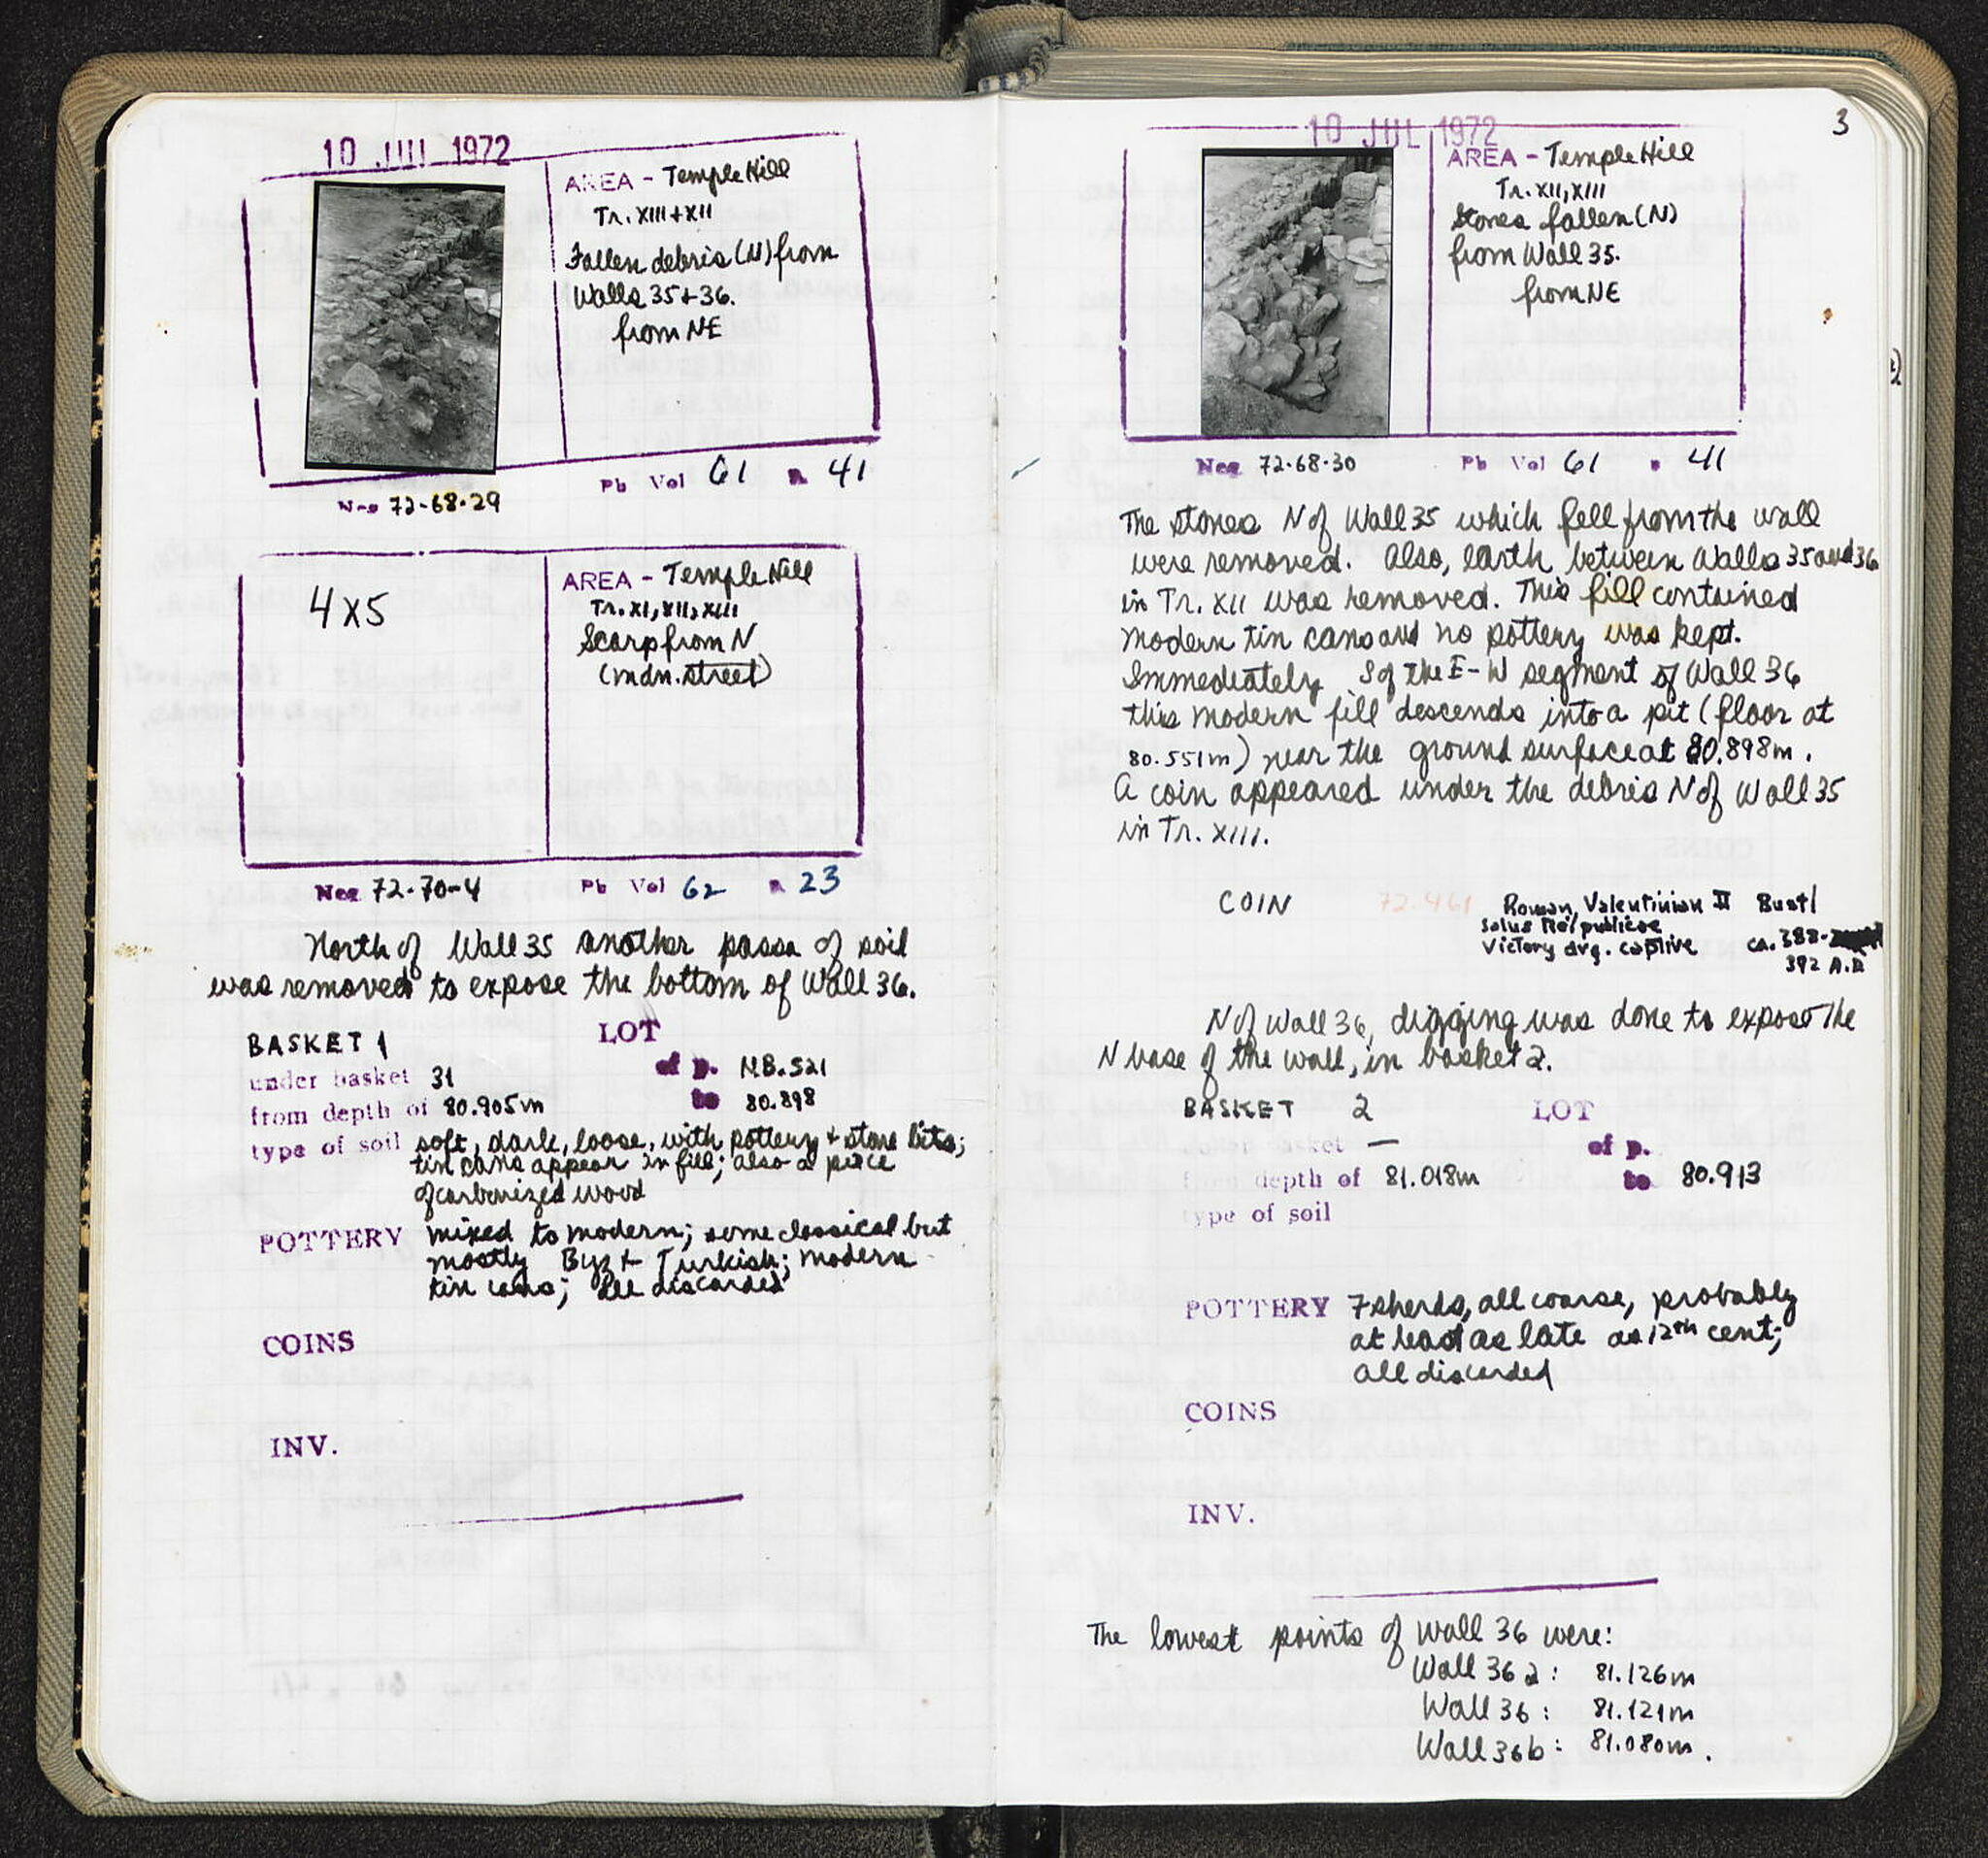 10 JUL 1972
AREA - Temple Hill
Tr. XIII + XII
Fallen debris (N) from
Walls 35 + 36.
from NE
Neg 72-68-29
Pb Vol 61 p. 41
4 x 5
AREA - Temple Hill
Tr. XI, XII, XIII
Scarp from N
(mdn. street)
Neg 72-70-4
Pb Vol 62 p. 23
North of Wall 35 another pass of soil
was removed to expose the bottom of Wall 36.
BASKET 1
LOT
under basket 31
of p. NB. 521
from depth of 80.905m
to 80.898
type of soil soft, dark, loose, with pottery + stone bits;
tin cans appear in fill; also a piece
of carbonized wood
POTTERY mixed to modern; some classical but
mostly Byz + Turkish; modern
tin cans; all discarded
COINS
INV.
3
10 JUL 1972
AREA - Temple Hill
Tr. XII, XIII
Stones fallen (N)
from Wall 35.
from NE
Neg 72-68-30
Pb Vol 61 p. 41
The stones N of Wall 35 which fell from the wall
were removed. Also, earth between Walls 35 and 36
in Tr. XII was removed. This fill contained
modern tin cans and no pottery was kept.
Immediately S of the E-W segment of Wall 36
this modern fill descends into a pit (floor at
80.551m) near the ground surface at 80.898m.
A coin appeared under the debris N of Wall 35
in Tr. XIII.
COIN 72.461 Roman, Valentinian II Bust/
Salus Reipublicae
Victory drg. captive ca. 388-
392 A.D.
N of Wall 36, digging was done to expose the
N base of the wall, in basket 2.
BASKET 2
LOT
under basket —
of p.
from depth of 81.018m
to 80.913
type of soil
POTTERY 7 sherds, all coarse, probably
at least as late as 12th cent;
all discarded
COINS
INV.
The lowest points of Wall 36 were:
Wall 36a: 81.126m
Wall 36: 81.121m
Wall 36b: 81.080m.